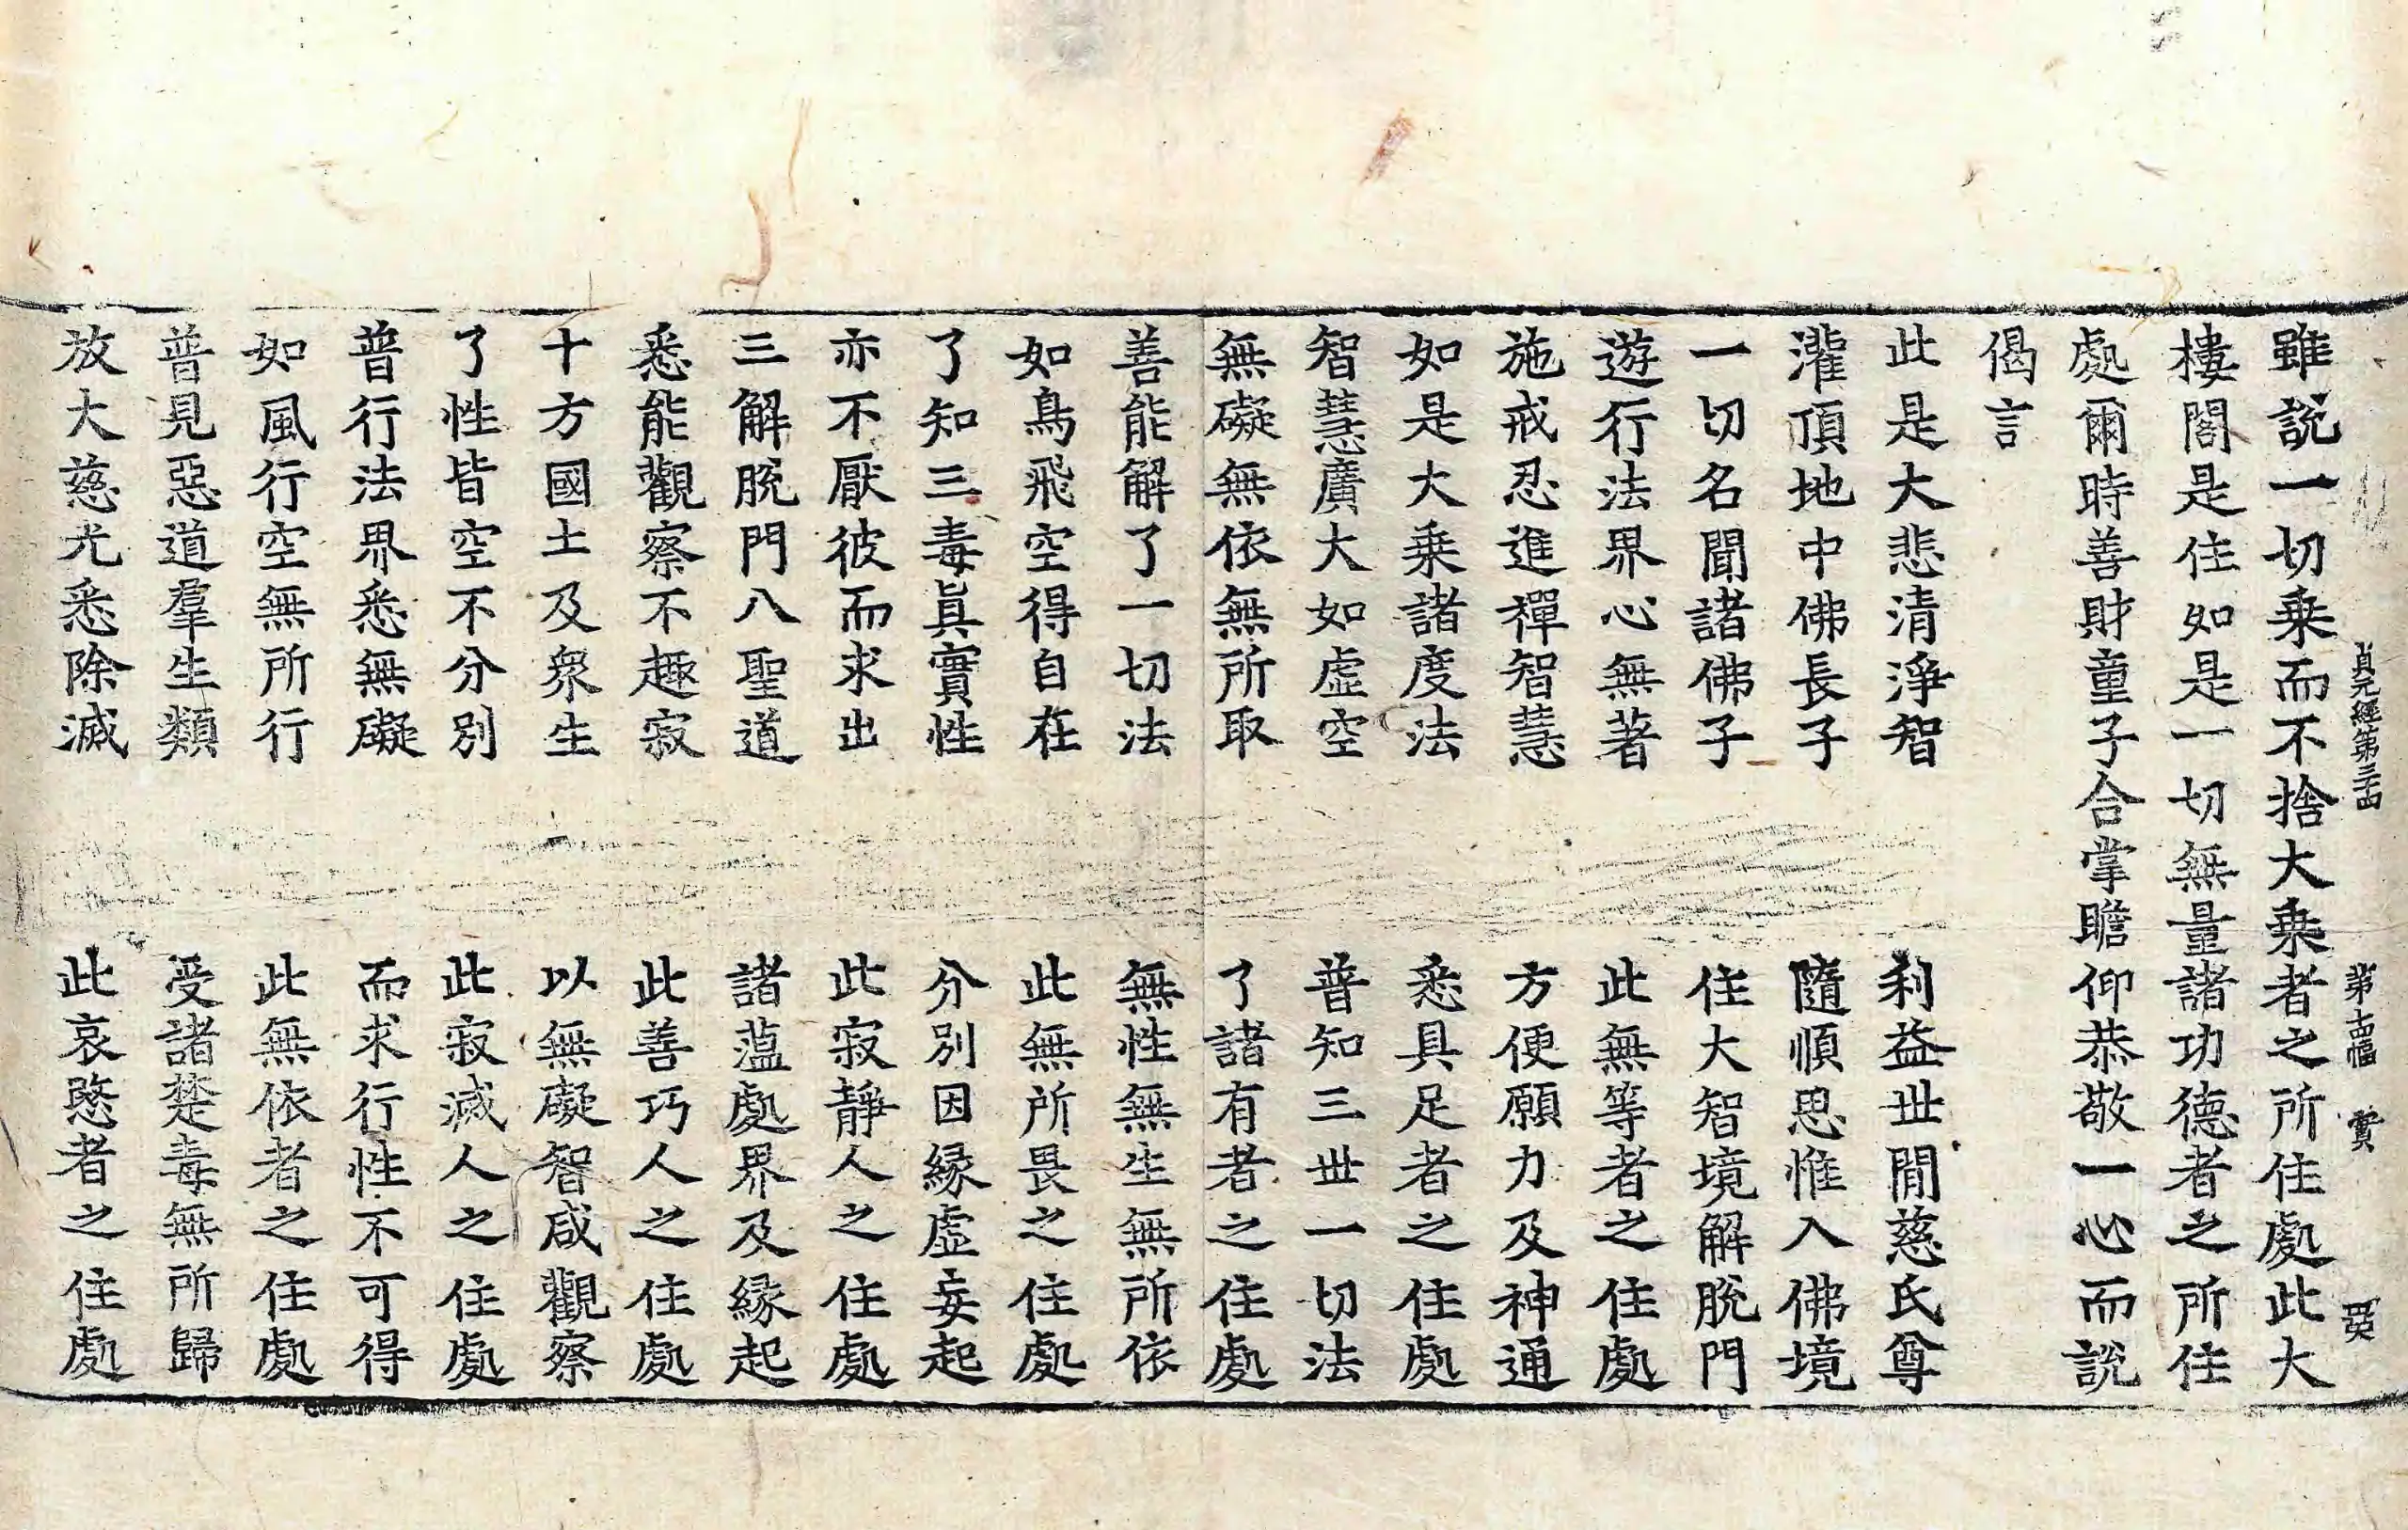 雖說一切乗而不捨大乗者之所住處此大
樓閣是住如是一切無量諸功德者之所住
處爾時善財童子合掌瞻仰恭敬一心而說
偈言
此是大悲清淨智　利益世間慈氏尊
灌頂地中佛長子　隨順思惟入佛境
一切名聞諸佛子　住大智境解脫門
遊行法界心無著　此無等者之住處
施戒忍進禪智慧　方便願力及神通
如是大乗諸度法　悉具足者之住處
智慧廣大如虛空　普知三世一切法
無礙無依無所取　了諸有者之住處
善能解了一切法　無性無生無所依
如鳥飛空得自在　此無所畏之住處
了知三毒眞實性　分別因緣虛妄起
亦不厭彼而求出　此寂靜人之住處
三解脫門八聖道　諸薀處界及緣起
悉能觀察不趣寂　此善巧人之住處
十方國土及衆生　以無礙智咸觀察
了性皆空不分別　此寂滅人之住處
普行法界悉無礙　而求行性不可得
如風行空無所行　此無依者之住處
普見惡道羣生類　受諸楚毒無所歸
放大慈光悉除滅　此哀愍者之住處
貞元經第三十四　第十四幅　賞